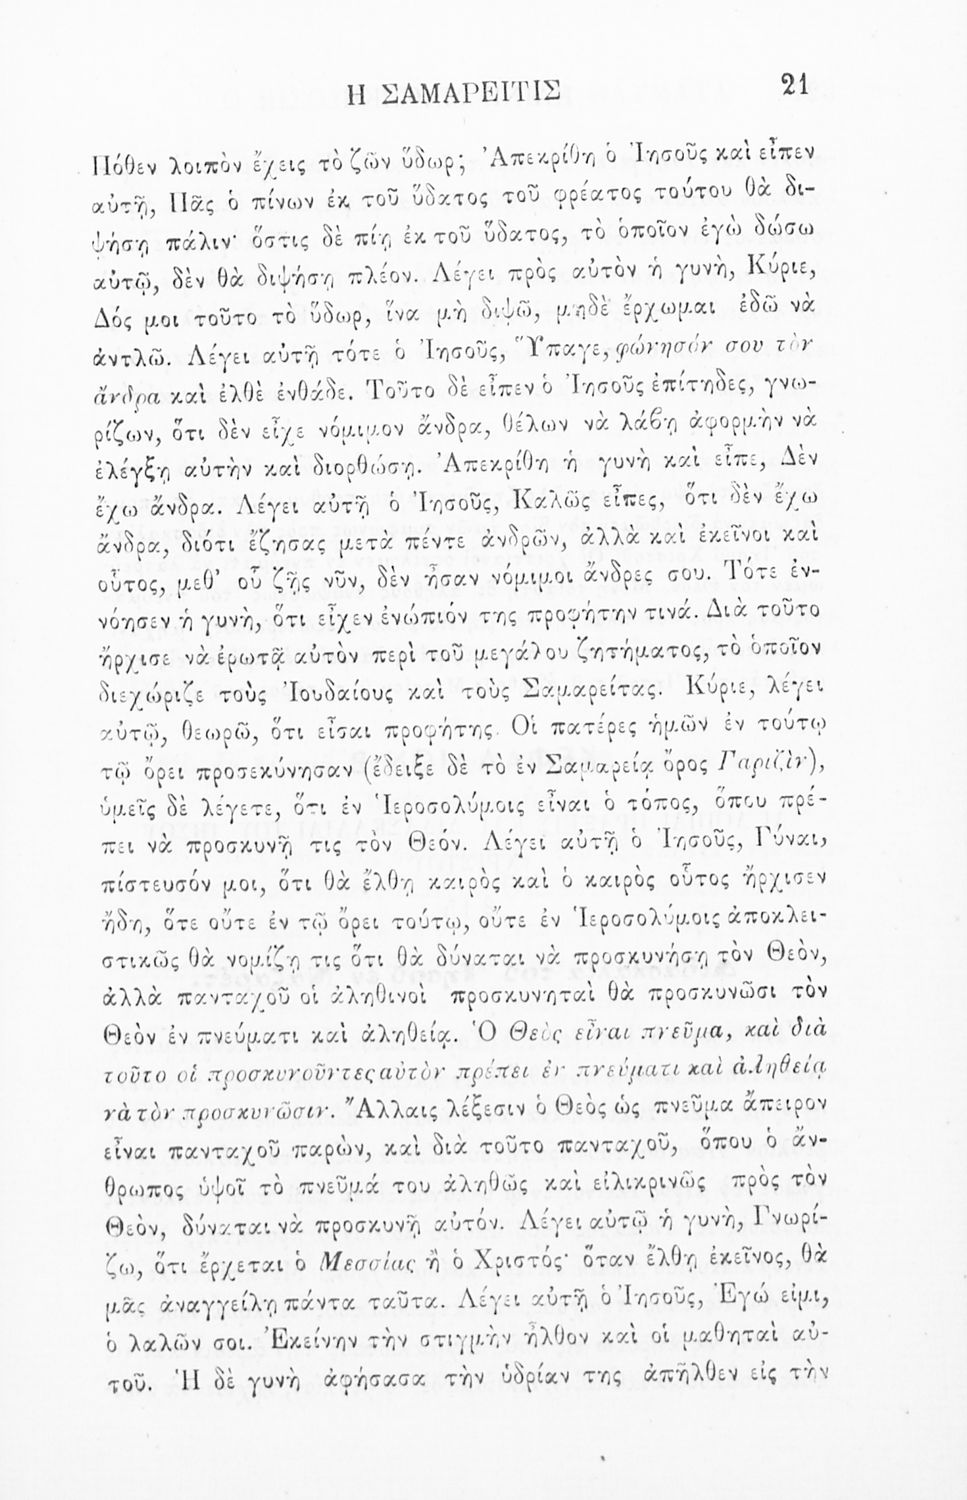 Η ΣΑΜΑΡΕΙΤΙΣ 21
Πόθεν λοιπὸν ἔχεις τὸ ζῶν ὕδωρ; Ἀπεκρίθη ὁ Ἰησοῦς καὶ εἶπεν
αὐτῇ, Πᾶς ὁ πίνων ἐκ τοῦ ὕδατος τοῦ φρέατος τούτου θὰ δι-
ψήσῃ πάλιν· ὅστις δὲ πίῃ ἐκ τοῦ ὕδατος, τὸ ὁποῖον ἐγὼ δώσω
αὐτῷ, δὲν θὰ διψήσῃ πλέον. Λέγει πρὸς αὐτὸν ἡ γυνὴ, Κύριε,
Δός μοι τοῦτο τὸ ὕδωρ, ἵνα μὴ διψῶ, μηδὲ ἔρχωμαι ἐδῶ νὰ
ἀντλῶ. Λέγει αὐτῇ τότε ὁ Ἰησοῦς, Ὕπαγε, φώνησόν σου τὸν
ἄνδρα καὶ ἐλθὲ ἐνθάδε. Τοῦτο δὲ εἶπεν ὁ Ἰησοῦς ἐπίτηδες, γνω-
ρίζων, ὅτι δὲν εἶχε νόμιμον ἄνδρα, θέλων νὰ λάβῃ ἀφορμὴν νὰ
ἐλέγξῃ αὐτὴν καὶ διορθώσῃ. Ἀπεκρίθη ἡ γυνὴ καὶ εἶπε, Δὲν
ἔχω ἄνδρα. Λέγει αὐτῇ ὁ Ἰησοῦς, Καλῶς εἶπες, ὅτι δὲν ἔχω
ἄνδρα, διότι ἔζησας μετὰ πέντε ἀνδρῶν, ἀλλὰ καὶ ἐκεῖνοι καὶ
οὗτος, μεθ' οὗ ζῇς νῦν, δὲν ἦσαν νόμιμοι ἄνδρες σου. Τότε ἐν-
νόησεν ἡ γυνὴ, ὅτι εἶχεν ἐνώπιόν της προφήτην τινά. Διὰ τοῦτο
ἤρχισε νὰ ἐρωτᾷ αὐτὸν περὶ τοῦ μεγάλου ζητήματος, τὸ ὁποῖον
διεχώριζε τοὺς Ἰουδαίους καὶ τοὺς Σαμαρείτας. Κύριε, λέγει
αὐτῷ, θεωρῶ, ὅτι εἶσαι προφήτης. Οἱ πατέρες ἡμῶν ἐν τούτῳ
τῷ ὄρει προσεκύνησαν (ἔδειξε δὲ τὸ ἐν Σαμαρείᾳ ὄρος Γαριζὶν),
ὑμεῖς δὲ λέγετε, ὅτι ἐν Ἱεροσολύμοις εἶναι ὁ τόπος, ὅπου πρέ-
πει νὰ προσκυνῇ τις τὸν Θεόν. Λέγει αὐτῇ ὁ Ἰησοῦς, Γύναι,
πίστευσόν μοι, ὅτι θὰ ἔλθῃ καιρὸς καὶ ὁ καιρὸς οὗτος ἤρχισεν
ἤδη, ὅτε οὔτε ἐν τῷ ὄρει τούτῳ, οὔτε ἐν Ἱεροσολύμοις ἀποκλει-
στικῶς θὰ νομίζῃ τις ὅτι θὰ δύναται νὰ προσκυνήσῃ τὸν Θεὸν,
ἀλλὰ πανταχοῦ οἱ ἀληθινοὶ προσκυνηταὶ θὰ προσκυνῶσι τὸν
Θεὸν ἐν πνεύματι καὶ ἀληθείᾳ. Ὁ Θεὸς εἶναι πνεῦμα, καὶ διὰ
τοῦτο οἱ προσκυνοῦντες αὐτὸν πρέπει ἐν πνεύματι καὶ ἀληθείᾳ
νὰ τὸν προσκυνῶσιν. Ἄλλαις λέξεσιν ὁ Θεὸς ὡς πνεῦμα ἄπειρον
εἶναι πανταχοῦ παρὼν, καὶ διὰ τοῦτο πανταχοῦ, ὅπου ὁ ἄν-
θρωπος ὑψοῖ τὸ πνεῦμά του ἀληθῶς καὶ εἰλικρινῶς πρὸς τὸν
Θεὸν, δύναται νὰ προσκυνῇ αὐτόν. Λέγει αὐτῷ ἡ γυνὴ, Γνωρί-
ζω, ὅτι ἔρχεται ὁ Μεσσίας ἢ ὁ Χριστός· ὅταν ἔλθῃ ἐκεῖνος, θὰ
μᾶς ἀναγγείλῃ πάντα ταῦτα. Λέγει αὐτῇ ὁ Ἰησοῦς, Ἐγώ εἰμι,
ὁ λαλῶν σοι. Ἐκείνην τὴν στιγμὴν ἦλθον καὶ οἱ μαθηταὶ αὐ-
τοῦ. Ἡ δὲ γυνὴ ἀφήσασα τὴν ὑδρίαν της ἀπῆλθεν εἰς τὴν